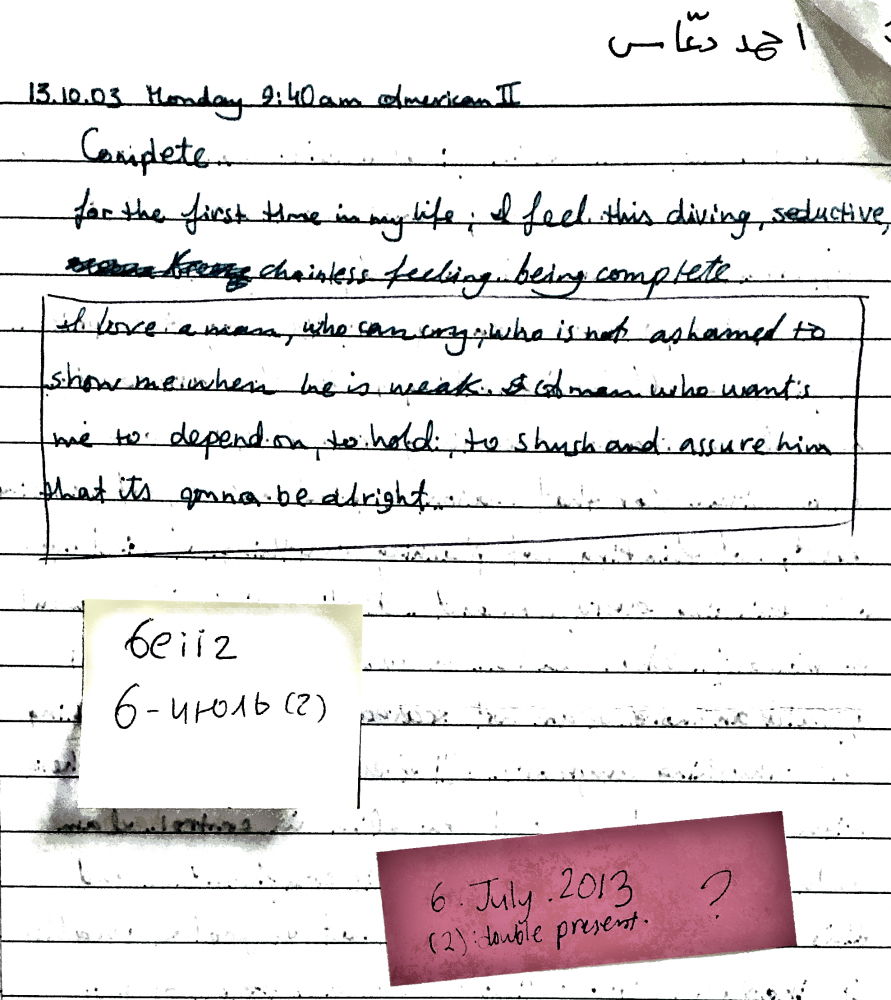 احمد دعّاس
13.10.03 Monday 9:40am American II
Complete
for the first time in my life, I feel this diving, seductive,
chainless feeling being complete
I love a man, who can cry, who is not ashamed to
show me when he is weak. A man who want's
me to depend on, to hold, to shush and assure him
that its gonna be alright
6eii2
6-июль (2)
6. July. 2013 ?
(2): double present.